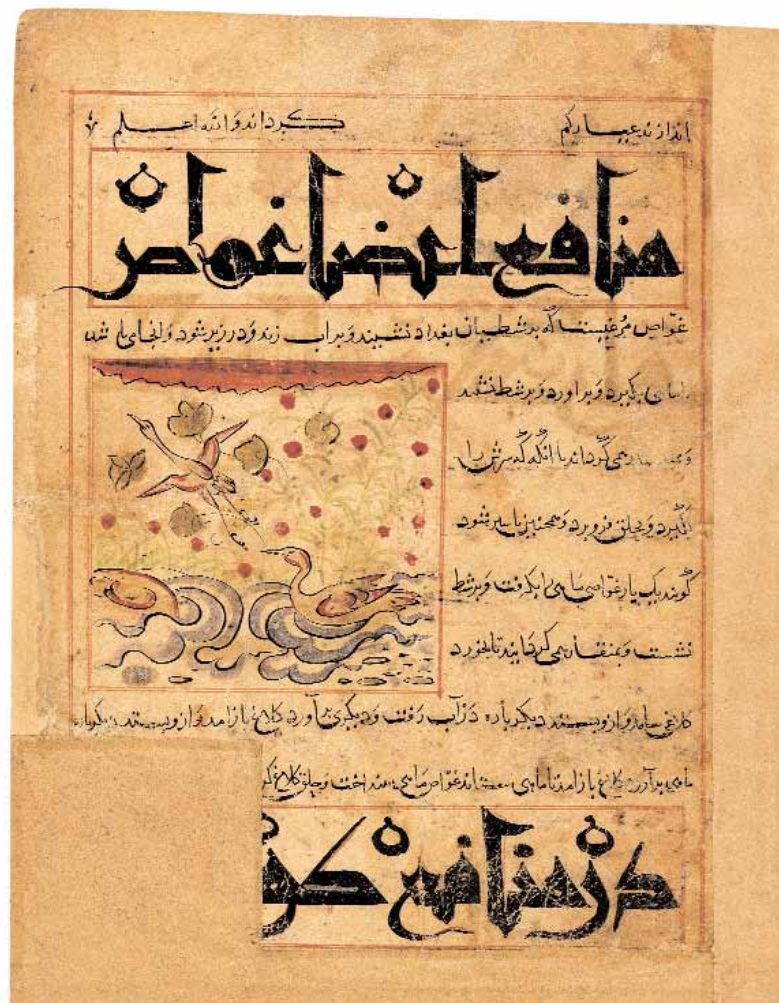 اندازند عیار کم کرداند والله اعلم
منافع اعضا غواص
غواص مرغیست که بر شط بان بغداد نشیند و بر اب زند و در زیر شود و انجای باشد
ماهی بکیرد و براورد و بر شط نشیند
می گرداند با انگه که سرش را
بگیرد و بحلق فرو برد و همچنین تا سیر شود
گویند یک بار غواصی ماهی را بگرفت و بر شط
نشست و بمنقار می گردانید تا بخورد
کلاغی بیامد و ازو بستد دیکر باره در آب رفت و دیکری برآورد کلاغ باز امد و ازو بستد دیکر باره
ماهی برآورد کلاغ باز امد تا ماهی بستاند غواص ماهی بینداخت و حلق کلاغ
در منافع